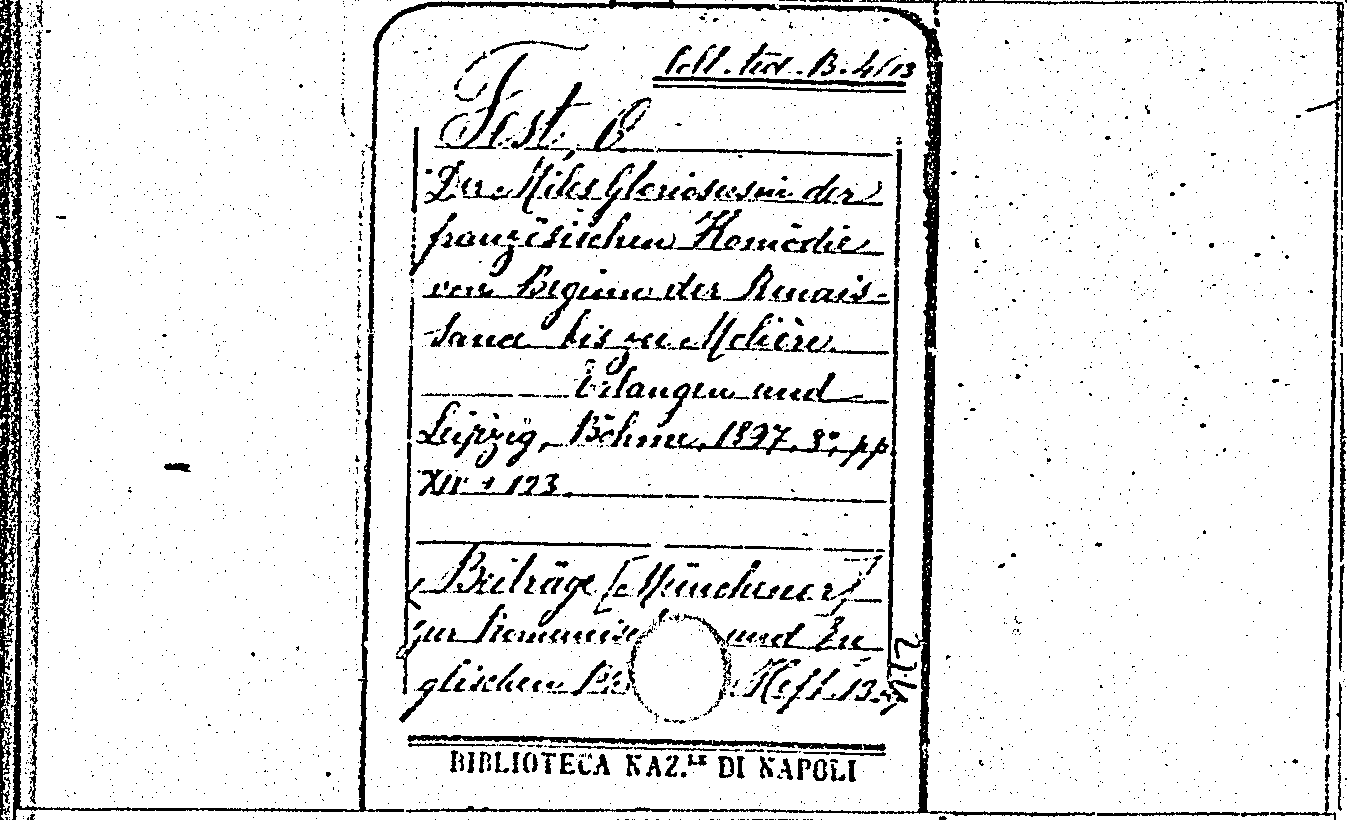 Coll. ted. B. 4/13
Fest, O
Der Miles Gloriosus in der
französischen Komödie
von Beginn der Renais-
sance bis zu Molière.
Erlangen und
Leipzig, Böhme, 1897, 8°, pp
XIV + 123.
Beiträge [Münchener]
zur Romanisc und En
glischen Ph Heft 13
BIBLIOTECA NAZ.LE DI NAPOLI